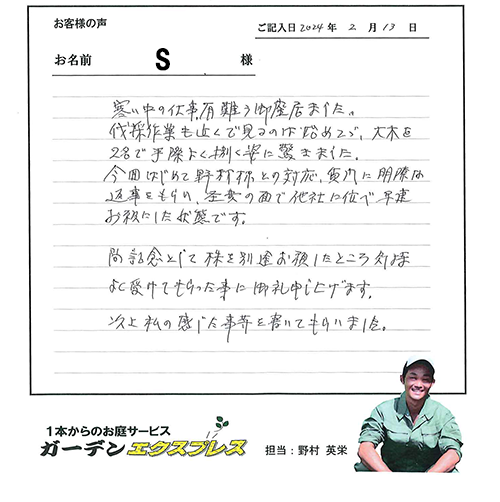 お客様の声
ご記入日 2024 年 2 月 13 日
お名前 S 様
寒い中の仕事有難う御座居ました。
伐採作業も近くで見るのは始めてで、大木を
2名で手際よく捌く姿に驚きました。
今回はじめて野村様との対応、質問に明瞭な
返事をもらい、金額の面で他社に比べ早速
お願いした状態です。
尚記念として株を別途お願いしたところ気持
よく受けてもらった事に御礼申し上げます。
以上私の感じた事等を書いてもらいました。
1本からのお庭サービス
ガーデンエクスプレス
担当：野村 英栄